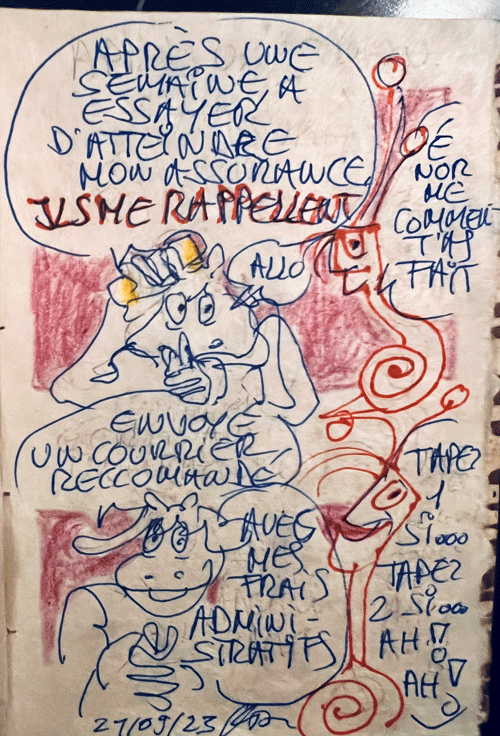 APRÈS UNE
SEMAINE A
ESSAYER
D'ATTEINDRE
MON ASSURANCE,
ILS ME RAPPELLENT
ALLO
É
NOR
ME
COMMEN
T'AS
FAIT
ENVOYÉ
UN COURRIER
RECCOMANDE
AVEC
MES
FRAIS
ADMINI-
STRATIFS
TAPEZ
1
SIooo
TAPEZ
2 SIooo
AH!!
AH!
27/09/23